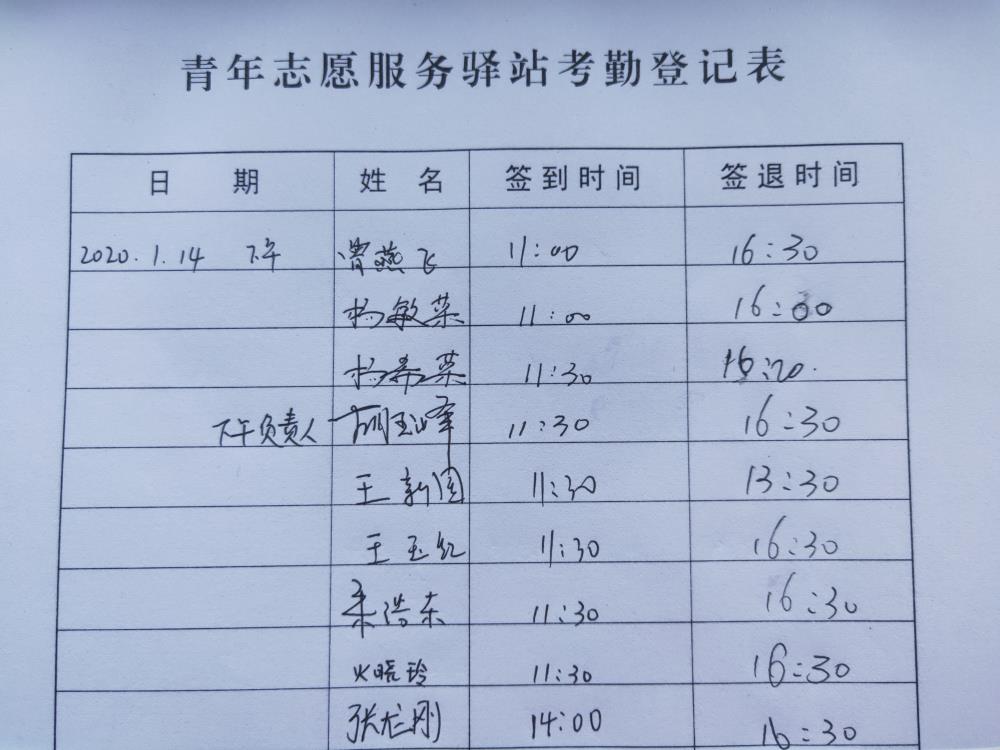 青年志愿服务驿站考勤登记表
日期 姓名 签到时间 签退时间
2020.1.14 下午 曾燕飞 11:00 16:30
杨敏荣 11:00 16:00
杨希荣 11:30 16:20.
下午负责人 胡玉峰 11:30 16:30
王新国 11:30 13:30
王玉红 11:30 16:30
浩东 11:30 16:30
火晓玲 11:30 16:30
张龙刚 14:00 16:30